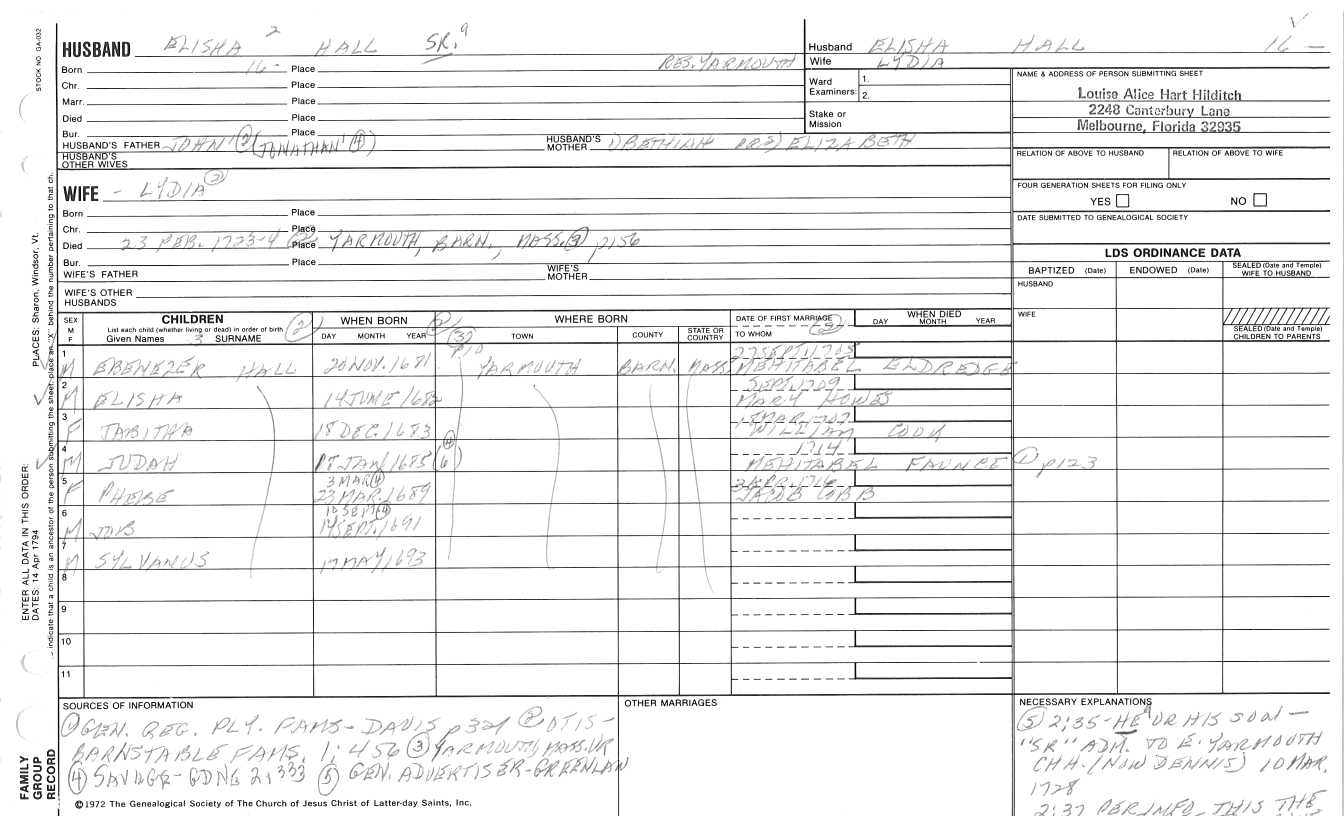 HUSBAND ELISHA 2 HALL SR.
Born 16- Place RES. YARMOUTH
Chr. Place
Marr. Place
Died Place
Bur. Place
HUSBAND'S FATHER JOHN' (2) (JONATHAN' (4)) HUSBAND'S MOTHER BETHIAH OR ELIZABETH
HUSBAND'S OTHER WIVES
Husband ELISHA HALL 16 —
Wife LYDIA
Ward Examiners: 1.
2.
Stake or Mission
NAME & ADDRESS OF PERSON SUBMITTING SHEET
Louise Alice Hart Hilditch
2248 Canterbury Lane
Melbourne, Florida 32935
RELATION OF ABOVE TO HUSBAND RELATION OF ABOVE TO WIFE
FOUR GENERATION SHEETS FOR FILING ONLY
YES NO
DATE SUBMITTED TO GENEALOGICAL SOCIETY
WIFE - LYDIA
Born Place
Chr. Place
Died 23 FEB. 1723-4 Place YARMOUTH, BARN., MASS. (3) p156
Bur. Place
WIFE'S FATHER WIFE'S MOTHER
WIFE'S OTHER HUSBANDS
LDS ORDINANCE DATA
BAPTIZED (Date) ENDOWED (Date) SEALED (Date and Temple) WIFE TO HUSBAND
HUSBAND
WIFE
SEALED (Date and Temple) CHILDREN TO PARENTS
SEX M F CHILDREN List each child (whether living or dead) in order of birth Given Names 3 SURNAME (2)
WHEN BORN DAY MONTH YEAR
WHERE BORN TOWN COUNTY STATE OR COUNTRY
(3) p10
DATE OF FIRST MARRIAGE TO WHOM
WHEN DIED DAY MONTH YEAR
27 SEPT. 1705
1 M EBENEZER HALL 20 NOV. 1681 YARMOUTH BARN. MASS. MEHITABEL ELDREDGE
SEPT. 1709
2 M ELISHA 14 JUNE 1682 MARY HOWES
18 MAR. 1707
3 F TABITHA 18 DEC. 1683 WILLIAM COOK
1714
4 M JUDAH 18 JAN 1685 (6 (4) MEHITABEL FAUNCE (1) p123
3 MAR (4)
5 F PHEBE 23 MAR. 1689 JACOB COBB
10 SEPT (4)
6 M JOB 14 SEPT. 1691
7 M SYLVANUS 17 MAY 1693
8
9
10
11
SOURCES OF INFORMATION
(1) GEN. REG. PLY. FAMS - DAVIS (2) OTIS -
BARNSTABLE FAMS. 1:456 (3) YARMOUTH, MASS. VR
(4) SAVAGE - GDNE 2:333 (5) GEN. ADVERTISER - GREENLAW
OTHER MARRIAGES
NECESSARY EXPLANATIONS
(5) 2:35 - HE OR HIS SON -
"SR" ADM. TO E. YARMOUTH
CHH. (NOW DENNIS) 10 MAR.
1728
2:37 PER INFO. THIS THE
©1972 The Genealogical Society of The Church of Jesus Christ of Latter-day Saints, Inc.
STOCK NO GA-032
PLACES: Sharon, Windsor, Vt.
ENTER ALL DATA IN THIS ORDER:
DATES: 14 Apr 1794
indicate that a child is an ancestor of the person submitting the sheet, place an "X" behind the number pertaining to that ch.
FAMILY GROUP RECORD